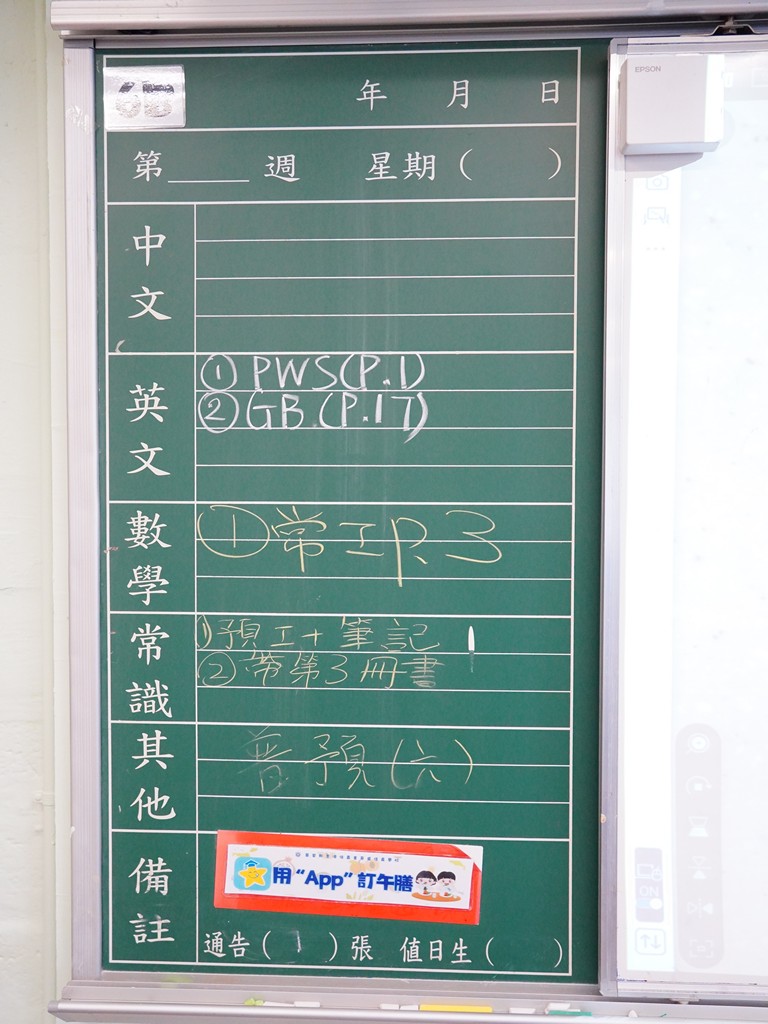 6B
年 月 日
EPSON
第____週 星期( )
中文
英文
① PWS(P.1)
② GB (P.17)
數學
① 常工P.3
常識
① 預工+筆記
② 帶第3冊書
其他
普預(六)
備註
用“App”訂午膳
通告( 1 )張 值日生( )
ON